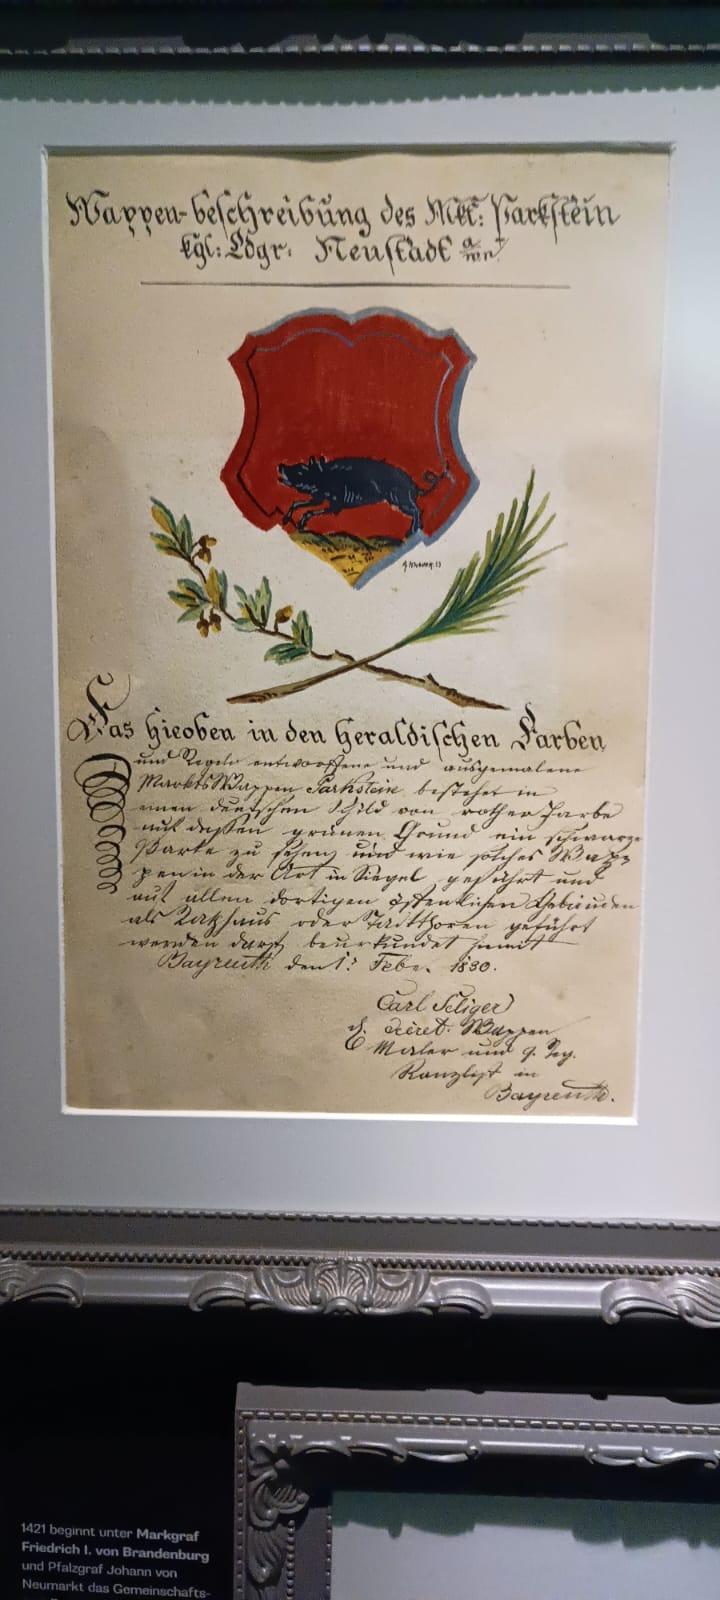 Wappen-beschreibung des Mkt: Parkstein
kgl: Ldgr: Neustadt a/wn.
Das hieoben in den heraldischen Farben
und Regeln entworffene und ausgemalene
Markts Wappen Parkstein bestehet in
einen deutschen Schild von rother Farbe
auf dessen grünen Grund ein schwarze
Parke zu sehen, und wie solches Wapp
pen in der Art in Siegel geführt und
auf allen dortigen öffentlichen Gebäuden
als Rathhaus oder Stadtthoren geführt
werden darf, beurkundet hiemit
Bayreuth den 1: Febr. 1830.
Carl Seliger
Wappen
Maler und q. Reg.
Kanzlist in
Bayreuth.
1421 beginnt unter Markgraf
Friedrich I. von Brandenburg
und Pfalzgraf Johann von
Neumarkt das Gemeinschafts-